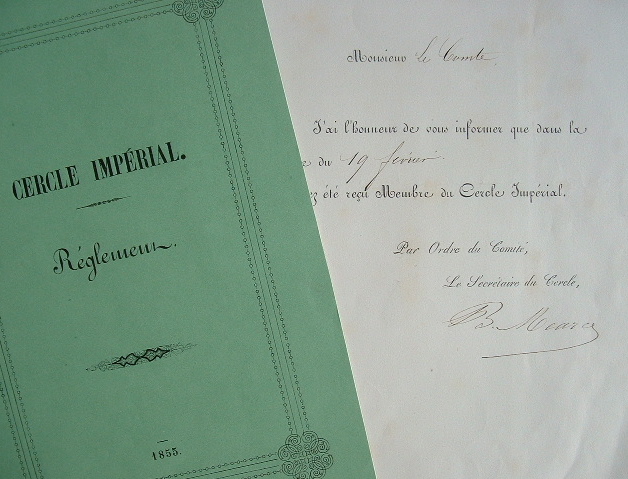 CERCLE IMPÉRIAL.
Réglement.
1855.
Monsieur Le Comte.
J'ai l'honneur de vous informer que dans la
e du 19 février
ez été reçu Membre du Cercle Impérial.
Par Ordre du Comité,
Le Secrétaire du Cercle,